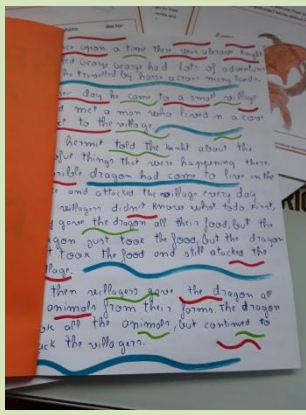 upon a time there was a brave knight
George George had lots of adventures
he travelled by horse across many lands.
day he came to a small village
met a man who lived in a cave
to the village.
hermit told the knight about the
things that were happening there.
dragon had come to live in the
and attacked the village every day
villagers didn't knows what todo. First,
gave the dragon all their food, but the
just took the food, but the dragon
took the food and still atacked the
then villagers gave the dragon all
animals from their farms. The dragon
all the animals, but continued to
the villagers.